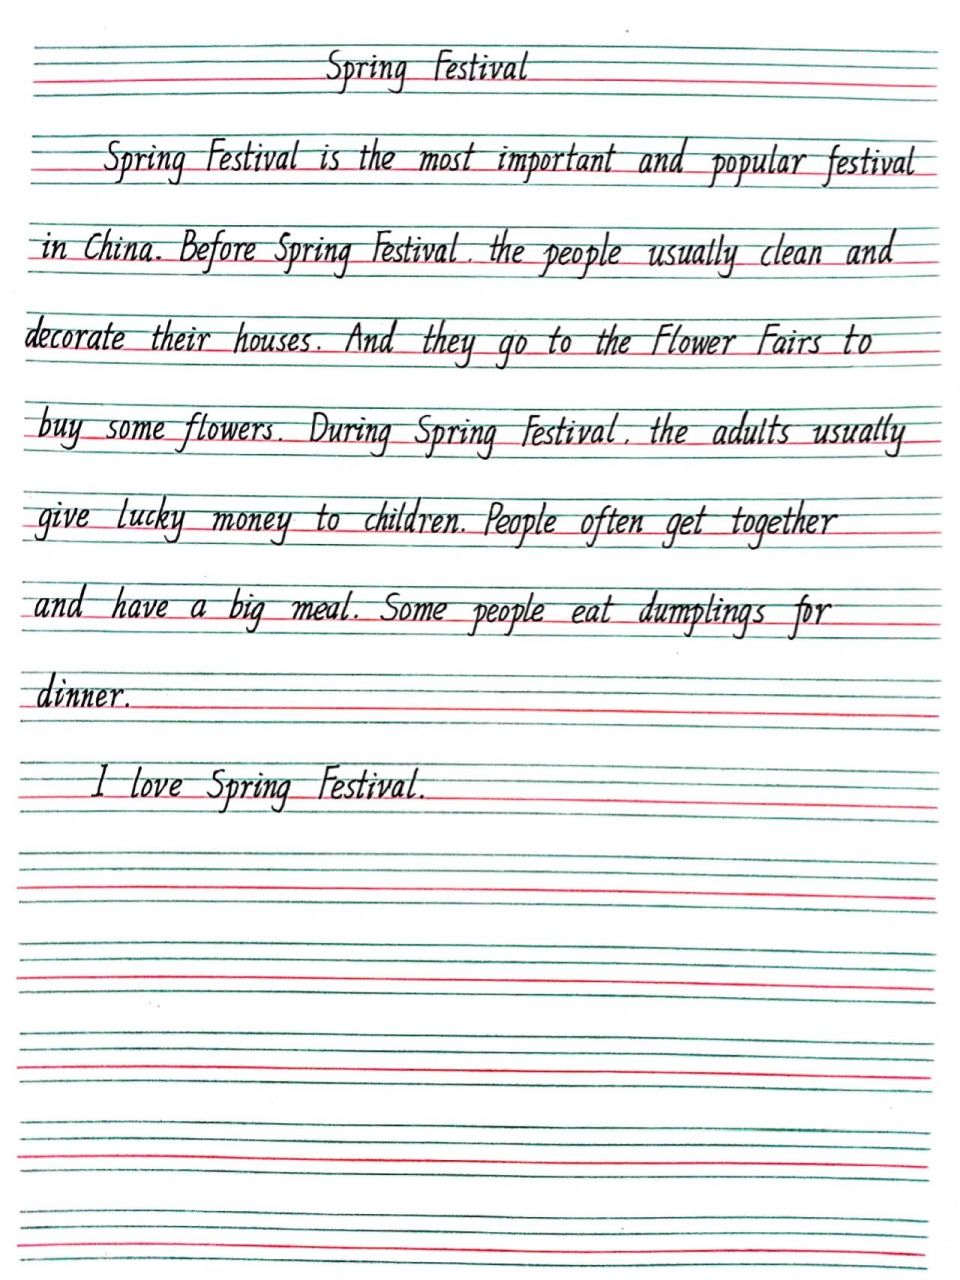 Spring Festival
Spring Festival is the most important and popular festival
in China. Before Spring Festival, the people usually clean and
decorate their houses. And they go to the Flower Fairs to
buy some flowers. During Spring Festival, the adults usually
give lucky money to children. People often get together
and have a big meal. Some people eat dumplings for
dinner.
I love Spring Festival.